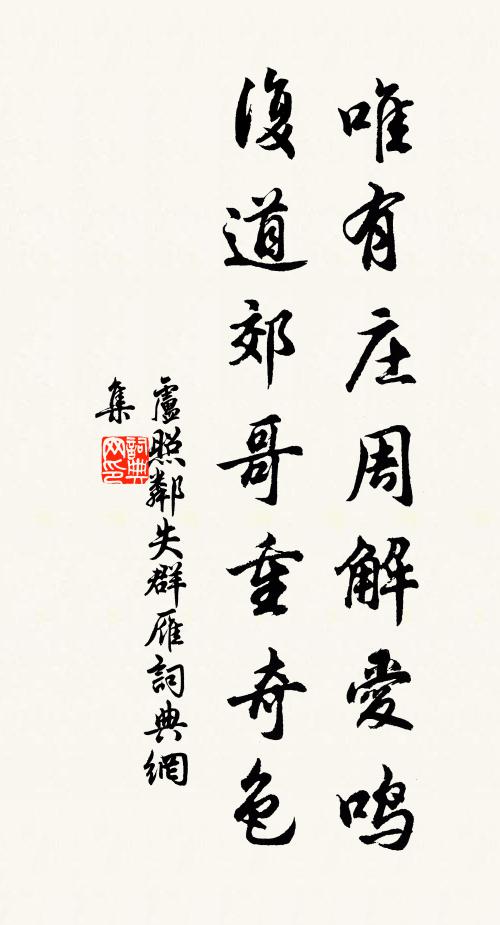 唯有庄周解愛鸣
復道郊哥重奇色
盧照鄰失群雁詞典網
集
詞典
网印